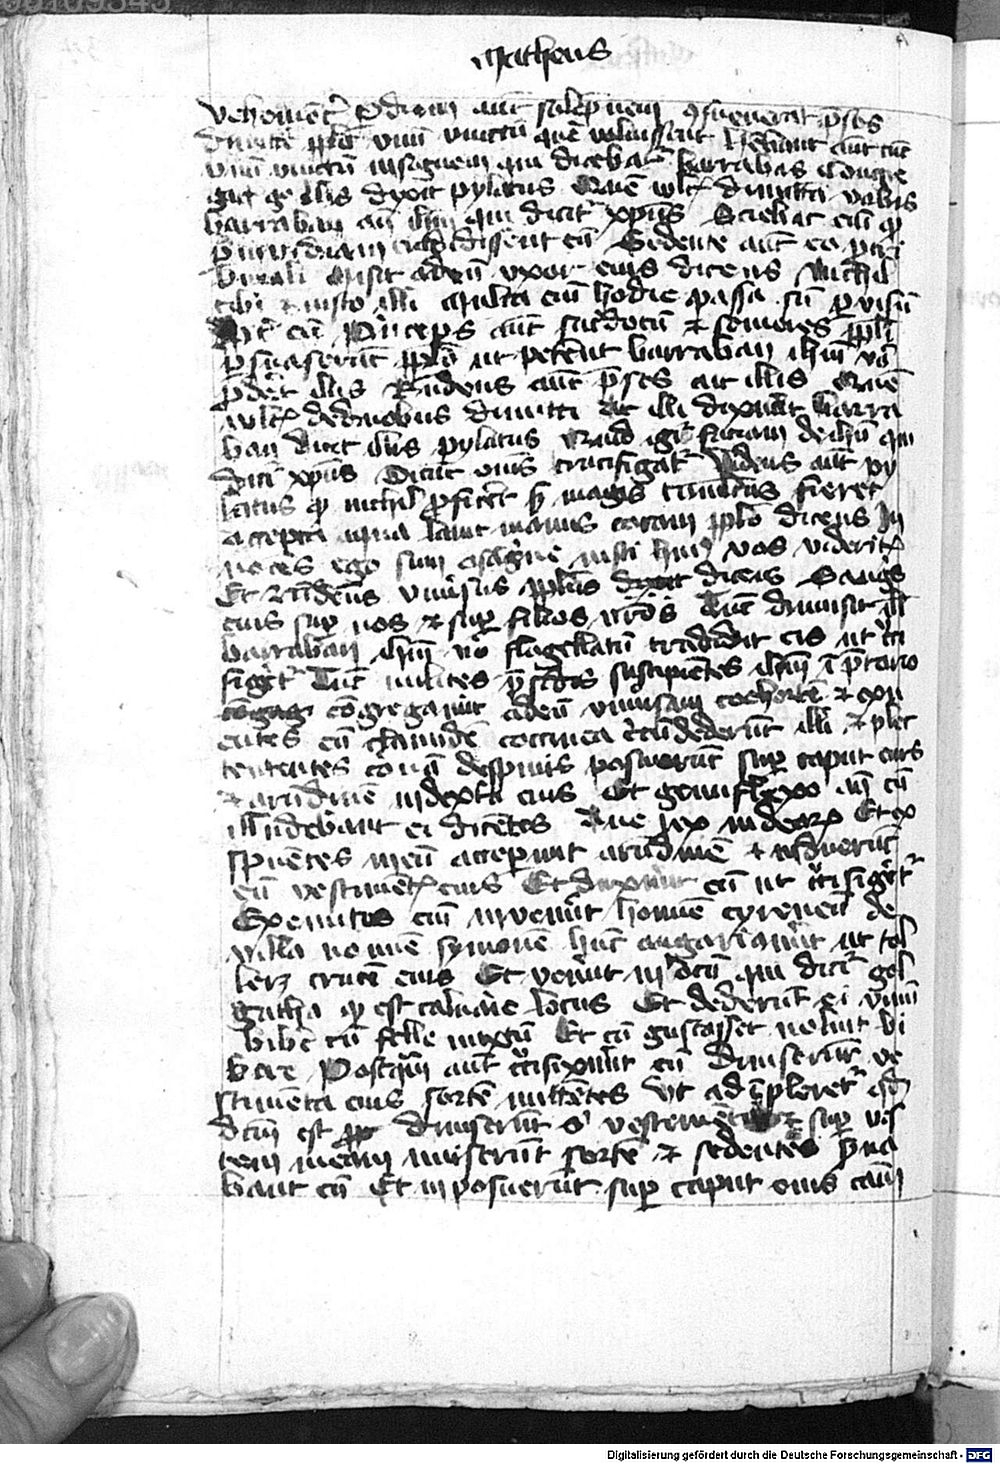 Matheus
vehement(er) P(er) diem aut(em) solēpnem (con)sueuerat p(re)ses
dimitte(re) p(o)p(u)lo vnū vinctū quē voluissent Habebant aūt tūc
vnū vinctū insignem qui dicebat(ur) barrabas Congre
gat(is) g(o) illis dixit pylatus Quē vult(is) dimittā vobis
barraban an ih(esu)m qui dicit(ur) xp(istu)s Sciebat eni(m) q(uod)
p(er) inuidiam t(ra)didissent eū Sedente aūt eo p(ro) t(ri)
bunali misit ad eū vxor eius dicens Nichil
tibi et iusto illi Multa eni(m) hodie passa sū p(er) visū
p(ro)pt(er) eū Princeps aūt sac(er)dotū et seniores p(o)p(u)li
p(er)suaserūt p(o)p(u)lo ut peterent barraban ih(esu)m v(er)o
p(er)der(e)nt illis R(espo)ndens aūt p(re)ses ait illis Quē
vult(is) de duobus dimitti At illi dixerūt barra
ban dicit illis pylatus Quid igi(tur) faciam de ih(es)u qui
dicit(ur) xp(istu)s Dicūt om(ne)s crucifigat(ur) Videns aūt py
latus q(uod) nichil p(ro)ficeret s(ed) magis tumultus fieret
accepta aqua lauit manus coram p(o)p(u)lo dicens In
noces ego sum a sa(n)g(u)ine iusti hui(us) vos viderit(is)
Et r(espo)ndens vniu(er)sus p(o)p(u)lus dixit dicens Sangu(i)s
eius sup(er) nos et sup(er) filios n(ost)ros Tūc dimisit ill(is)
barraban ih(esu)m v(er)o flagellatū tradidit eis ut c(ru)ci
figeret(ur) Tūc milites p(re)sidis suscipientes ih(esu)m ī p(re)torio
congreg congregauer(un)t ad eū vniu(er)sam cohortē et exu
entes eū clamidē coccinea c(ir)cūdederūt illi et plec
tentes coronā de spinis posuerūt sup(er) caput eius
et arūdinē in dext(er)a eius Et genu flexo an(te) eū
illudebant ei dicētes Aue rex iudeor(um) Et ex
spuentes in eū acceperunt arūdinē et induerūt
eū vestiment(is) eius Et duxerūt eū ut c(ru)cifiger(e)t(ur)
Exeuntes eni(m) inuenerūt hominē cyreneū de
villa nominē symonē hūc angariauerūt ut tol
leret crucē eius Et vener(un)t in locū qui dicit(ur) gol
gatha q(uod) est caluarie locus Et dederūt ei vinū
bibe(re) cū felle mixtū Et cū gustasset noluit bi
bere Postq(uam) aūt c(ru)cifixerūt eū diuiserūt ve
stimenta eius sortē mittētes vt adimpleret(ur) q(uo)d
d(i)c(tu)m est diuiserūt s(ibi) vestimenta et sup(er) ves
tem meam miserūt sortē et sedentes s(er)ua
bant eū Et inposuerūt sup(er) caput eius cau(sa)m
Digitalisierung gefördert durch die Deutsche Forschungsgemeinschaft - DFG